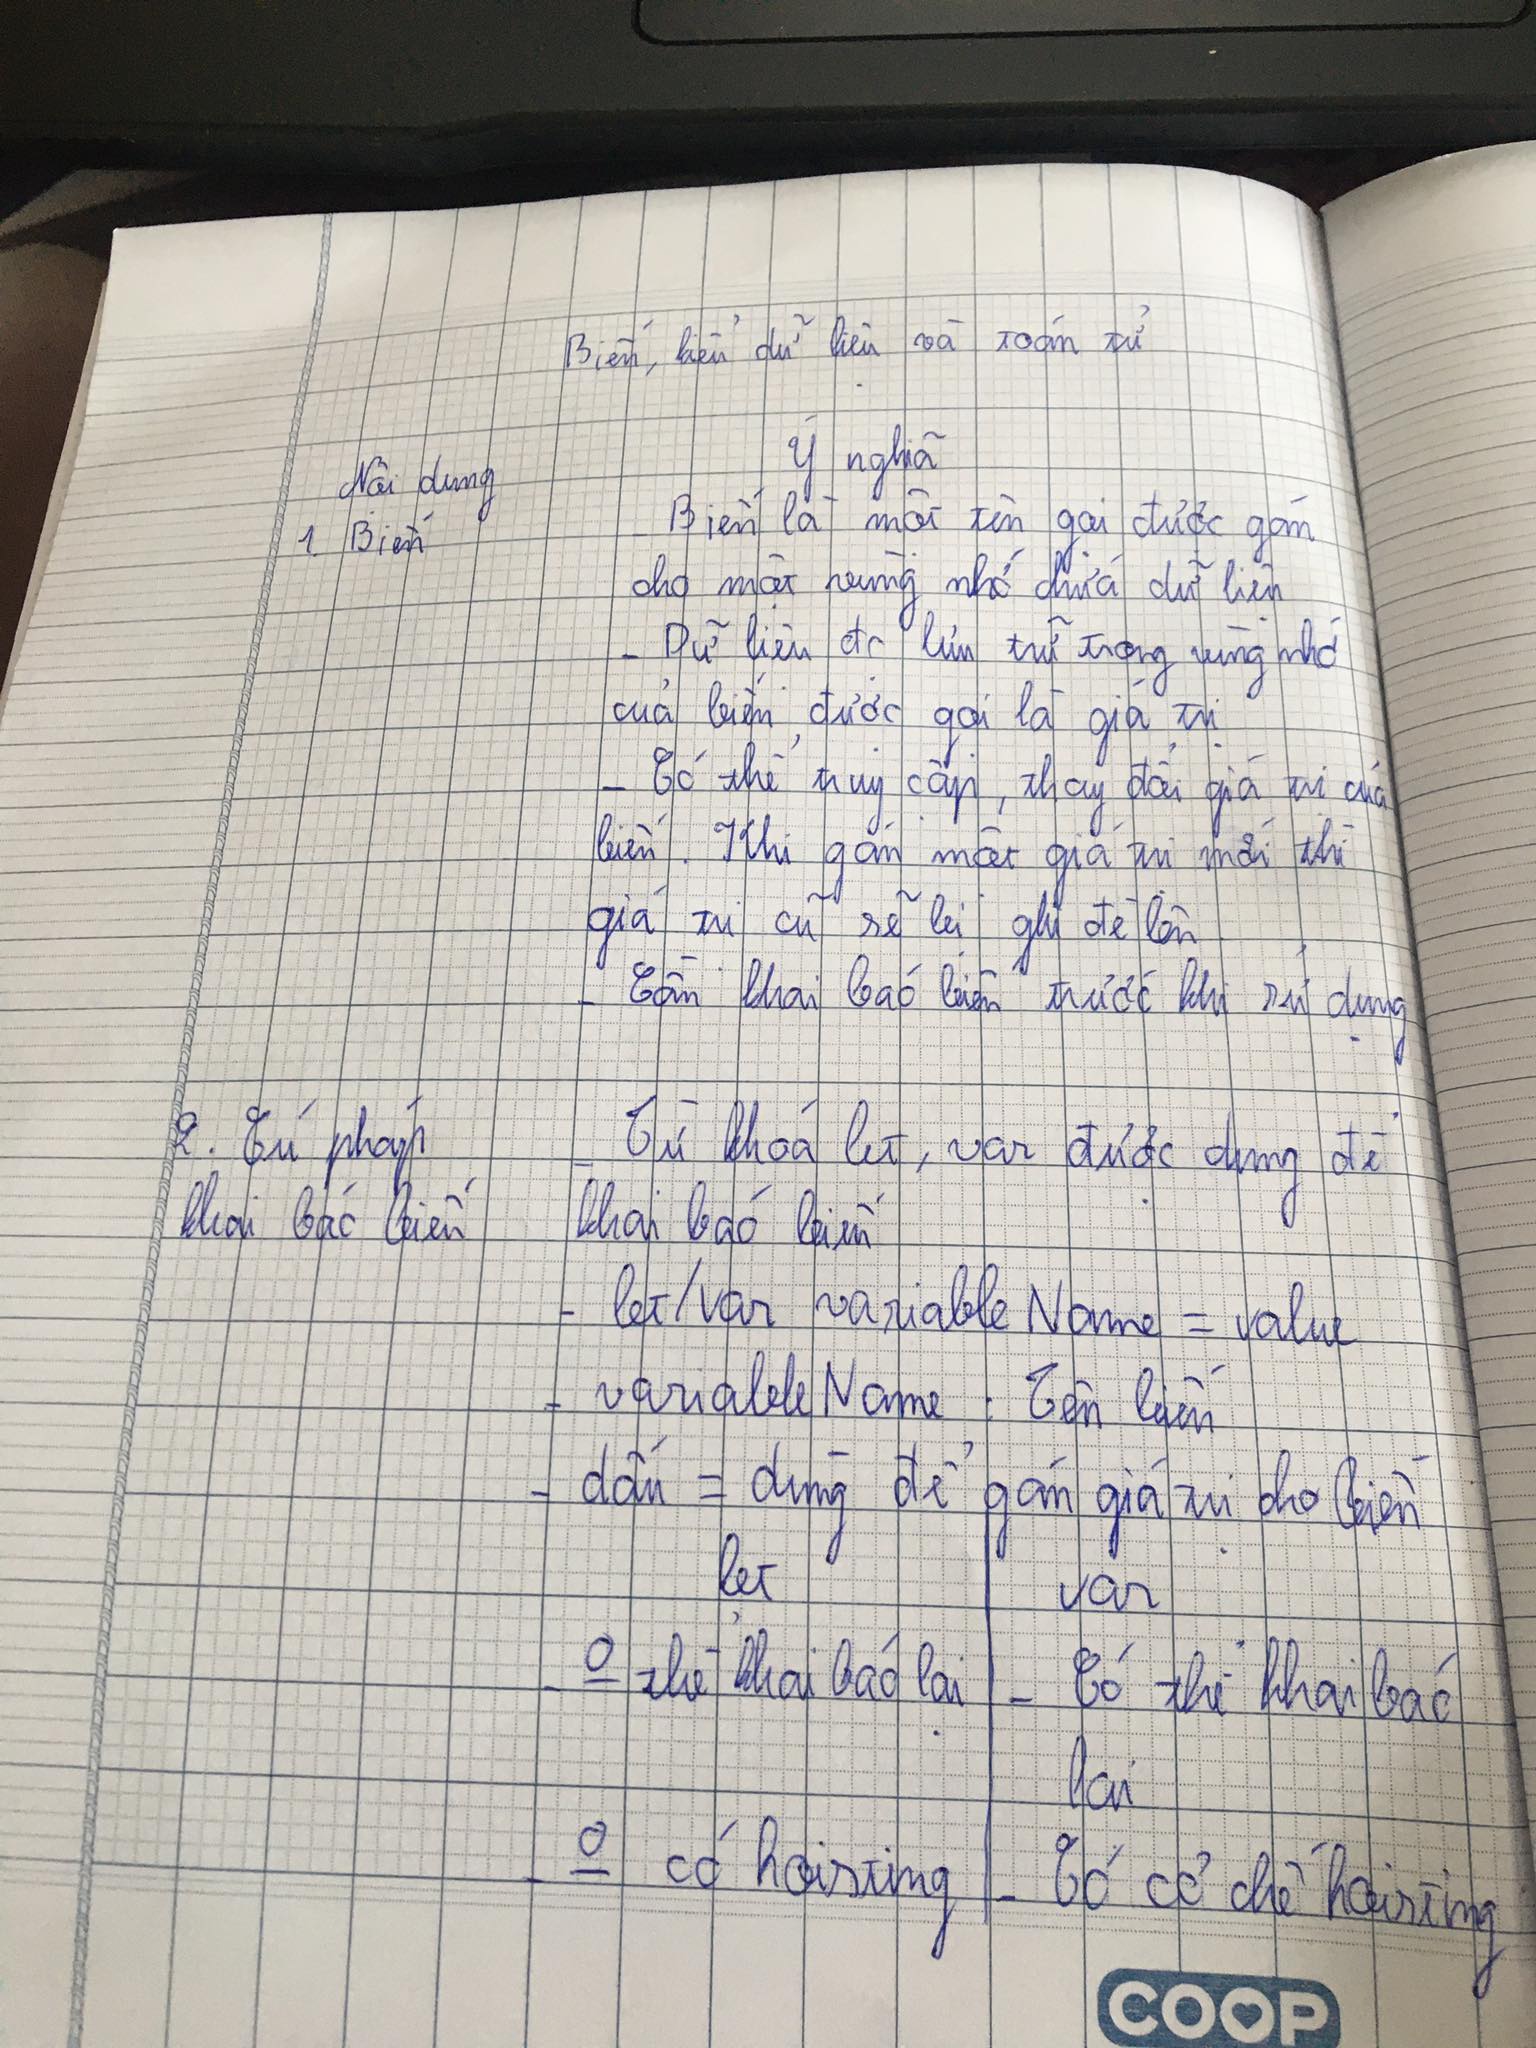 Biến, kiểu dữ liệu và toán tử
Nội dung
Ý nghĩa
1. Biến
- Biến là một tên gọi được gán
cho một vùng nhớ chứa dữ liệu
- Dữ liệu đc lưu trữ trong vùng nhớ
của biến được gọi là giá trị
- Có thể truy cập, thay đổi giá trị của
biến. Khi gán một giá trị mới thì
giá trị cũ sẽ bị ghi đè lên
- Cần khai báo biến trước khi sử dụng
2. Cú pháp
khai báo biến
- Từ khoá let, var được dùng để
khai báo biến
- let/var variableName = value
- variableName : Tên biến
- dấu = dùng để gán giá trị cho biến
let
var
- O thể khai báo lại
- Có thể khai báo
lại
- O có hoisting
- Có cơ chế hoisting
COOP